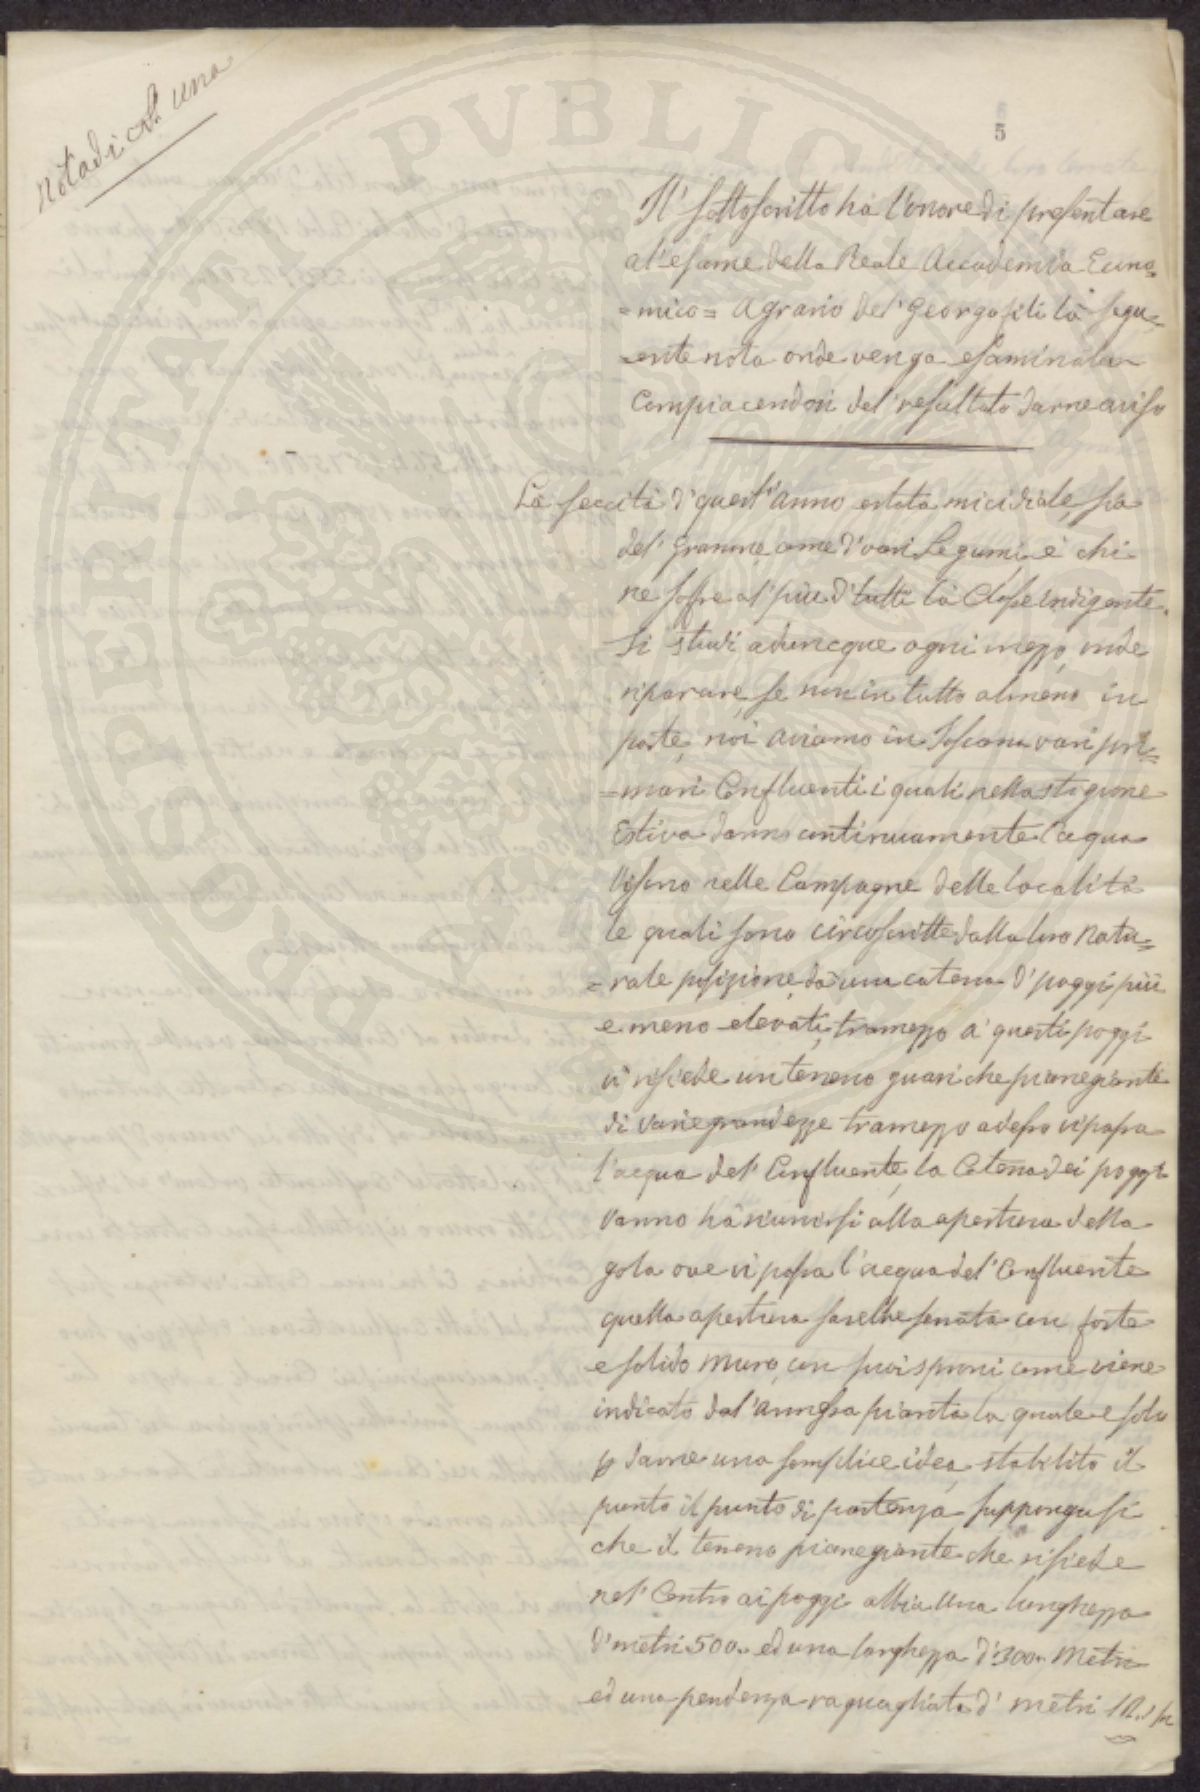 Nota di N. una
5
Il sottoscritto ha l'onore di presentare
al'esame della Reale Accademia Ecino=
=mico= Agrario del' Georgofili la segu=
=ente nota onde venga esaminata
Compiacendosi del' resultato darne aviso
La seccità d'quest'anno estata micidiale, sia
del' Granine come d'vari Legumi, e chi
ne soffre al' più d'tutti là Classe indigente.
Si studi aduncque ogni mezzo, onde
riparare, se non in tutto almeno in
parte, noi aviamo in Toscana vari pri=
=mari Confluenti i quali nella stagione
Estiva danno continuamente l'acqua
Visono nelle Campagne delle località
le quali sono circoscritte dalla loro natu=
=rale posizione da una catena d'poggi più
e meno elevati, tramezzo a' questi poggi
vi risiede un terreno guasi che pianegiante
di varie grandezze tramezzo adesso vi passa
l'acqua del' Confluente, la Catena dei poggi
vanno hà riunirsi alla apertura della
gola ove vi passa l'acqua del' Confluente
quella apertura sarebbe serrata con forte
e solido muro, con suoi sproni come viene
indicato dal'annessa pianta la quale e solo
p darne una semplice idea, stabilito il
punto il punto di partenza, suppongasi
che il terreno pianegiante che risiede
nel' Centro ai poggi abbia una lunghezza
d'metri 500.. ed una larghezza d'300.. Metri
ed una pendenza raguagliata d' metri 12..